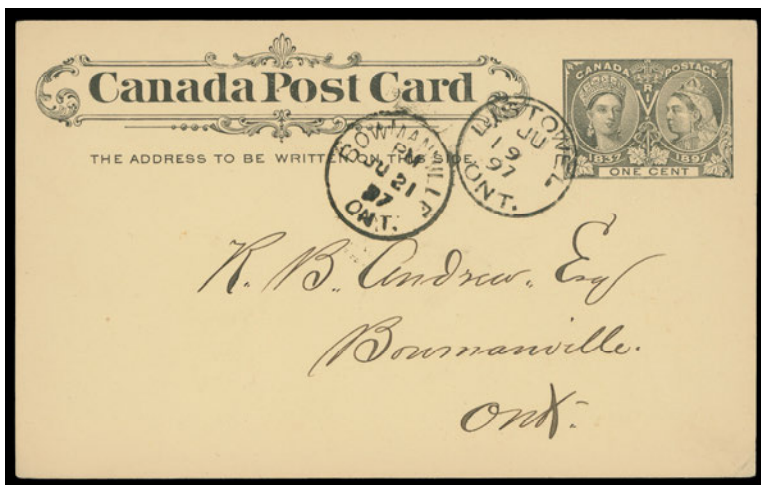 Canada Post Card
THE ADDRESS TO BE WRITTEN ON THIS SIDE.
CANADA POSTAGE
V R I
1837 1897
ONE CENT
BOWMANVILLE
PM
JU 21
97
ONT.
LISTOWEL
JU
19
97
ONT.
R. B. Andrew. Esq
Bowmanville.
Ont.